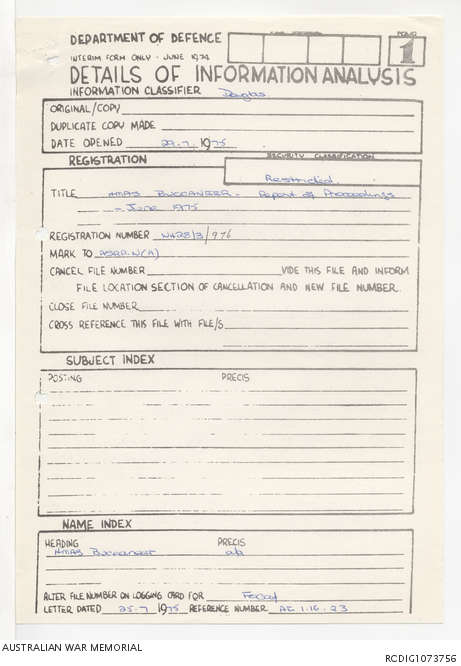 DEPARTMENT OF DEFENCE
INTERIM FORM ONLY - JUNE 1974
1
DETAILS OF INFORMATION ANALYSIS
INFORMATION CLASSIFIER Douglas
ORIGINAL/COPY
DUPLICATE COPY MADE
DATE OPENED 29.7 1975
REGISTRATION
SECURITY CLASSIFICATION
Restricted
TITLE HMAS BUCCANEER - Report of Proceedings
- June 1975
REGISTRATION NUMBER N428/3/976
MARK TO
CANCEL FILE NUMBER VIDE THIS FILE AND INFORM
FILE LOCATION SECTION OF CANCELLATION AND NEW FILE NUMBER.
CLOSE FILE NUMBER
CROSS REFERENCE THIS FILE WITH FILE/S
SUBJECT INDEX
POSTING PRECIS
NAME INDEX
HEADING PRECIS
HMAS Buccaneer a/a
ALTER FILE NUMBER ON LOGGING CARD FOR
LETTER DATED 25.7 1975 REFERENCE NUMBER AF 1.16.23
AUSTRALIAN WAR MEMORIAL
RCDIG1073756